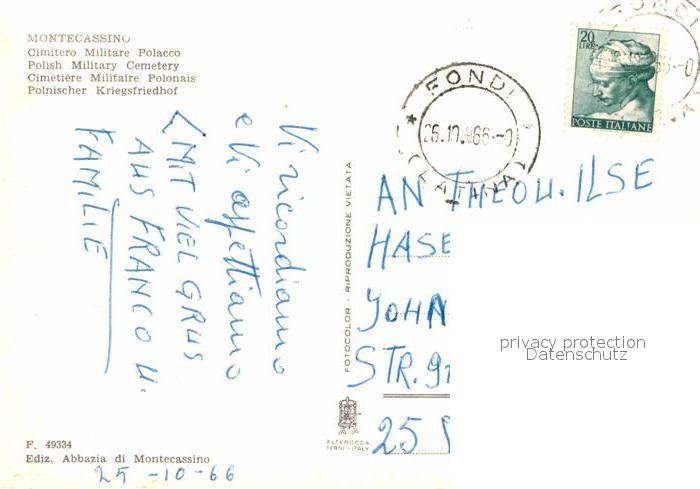 MONTECASSINO
Cimitero Militare Polacco
Polish Military Cemetery
Cimetière Militaire Polonais
Polnischer Kriegsfriedhof
FONDI
20
LIRE
POSTE ITALIANE
FONDI
26.10.966-0
(LATINA)
Vi ricordiamo
e Vi aspettiamo
MIT VIEL GRUS
AUS FRANCO U.
FAMILIE
FOTOCOLOR - RIPRODUZIONE VIETATA
AN THEO U. ILSE
HASE
JOHN
STR. 91
25
privacy protection
Datenschutz
ALTEROCCA
TERNI - ITALY
F. 49334
Ediz. Abbazia di Montecassino
25-10-66